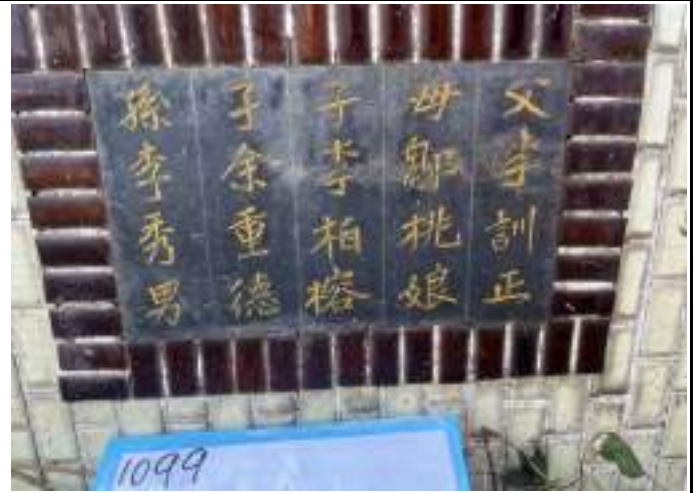 父李訓正
母鄒桃娘
子李柏榕
子余重德
孫李秀男
1099